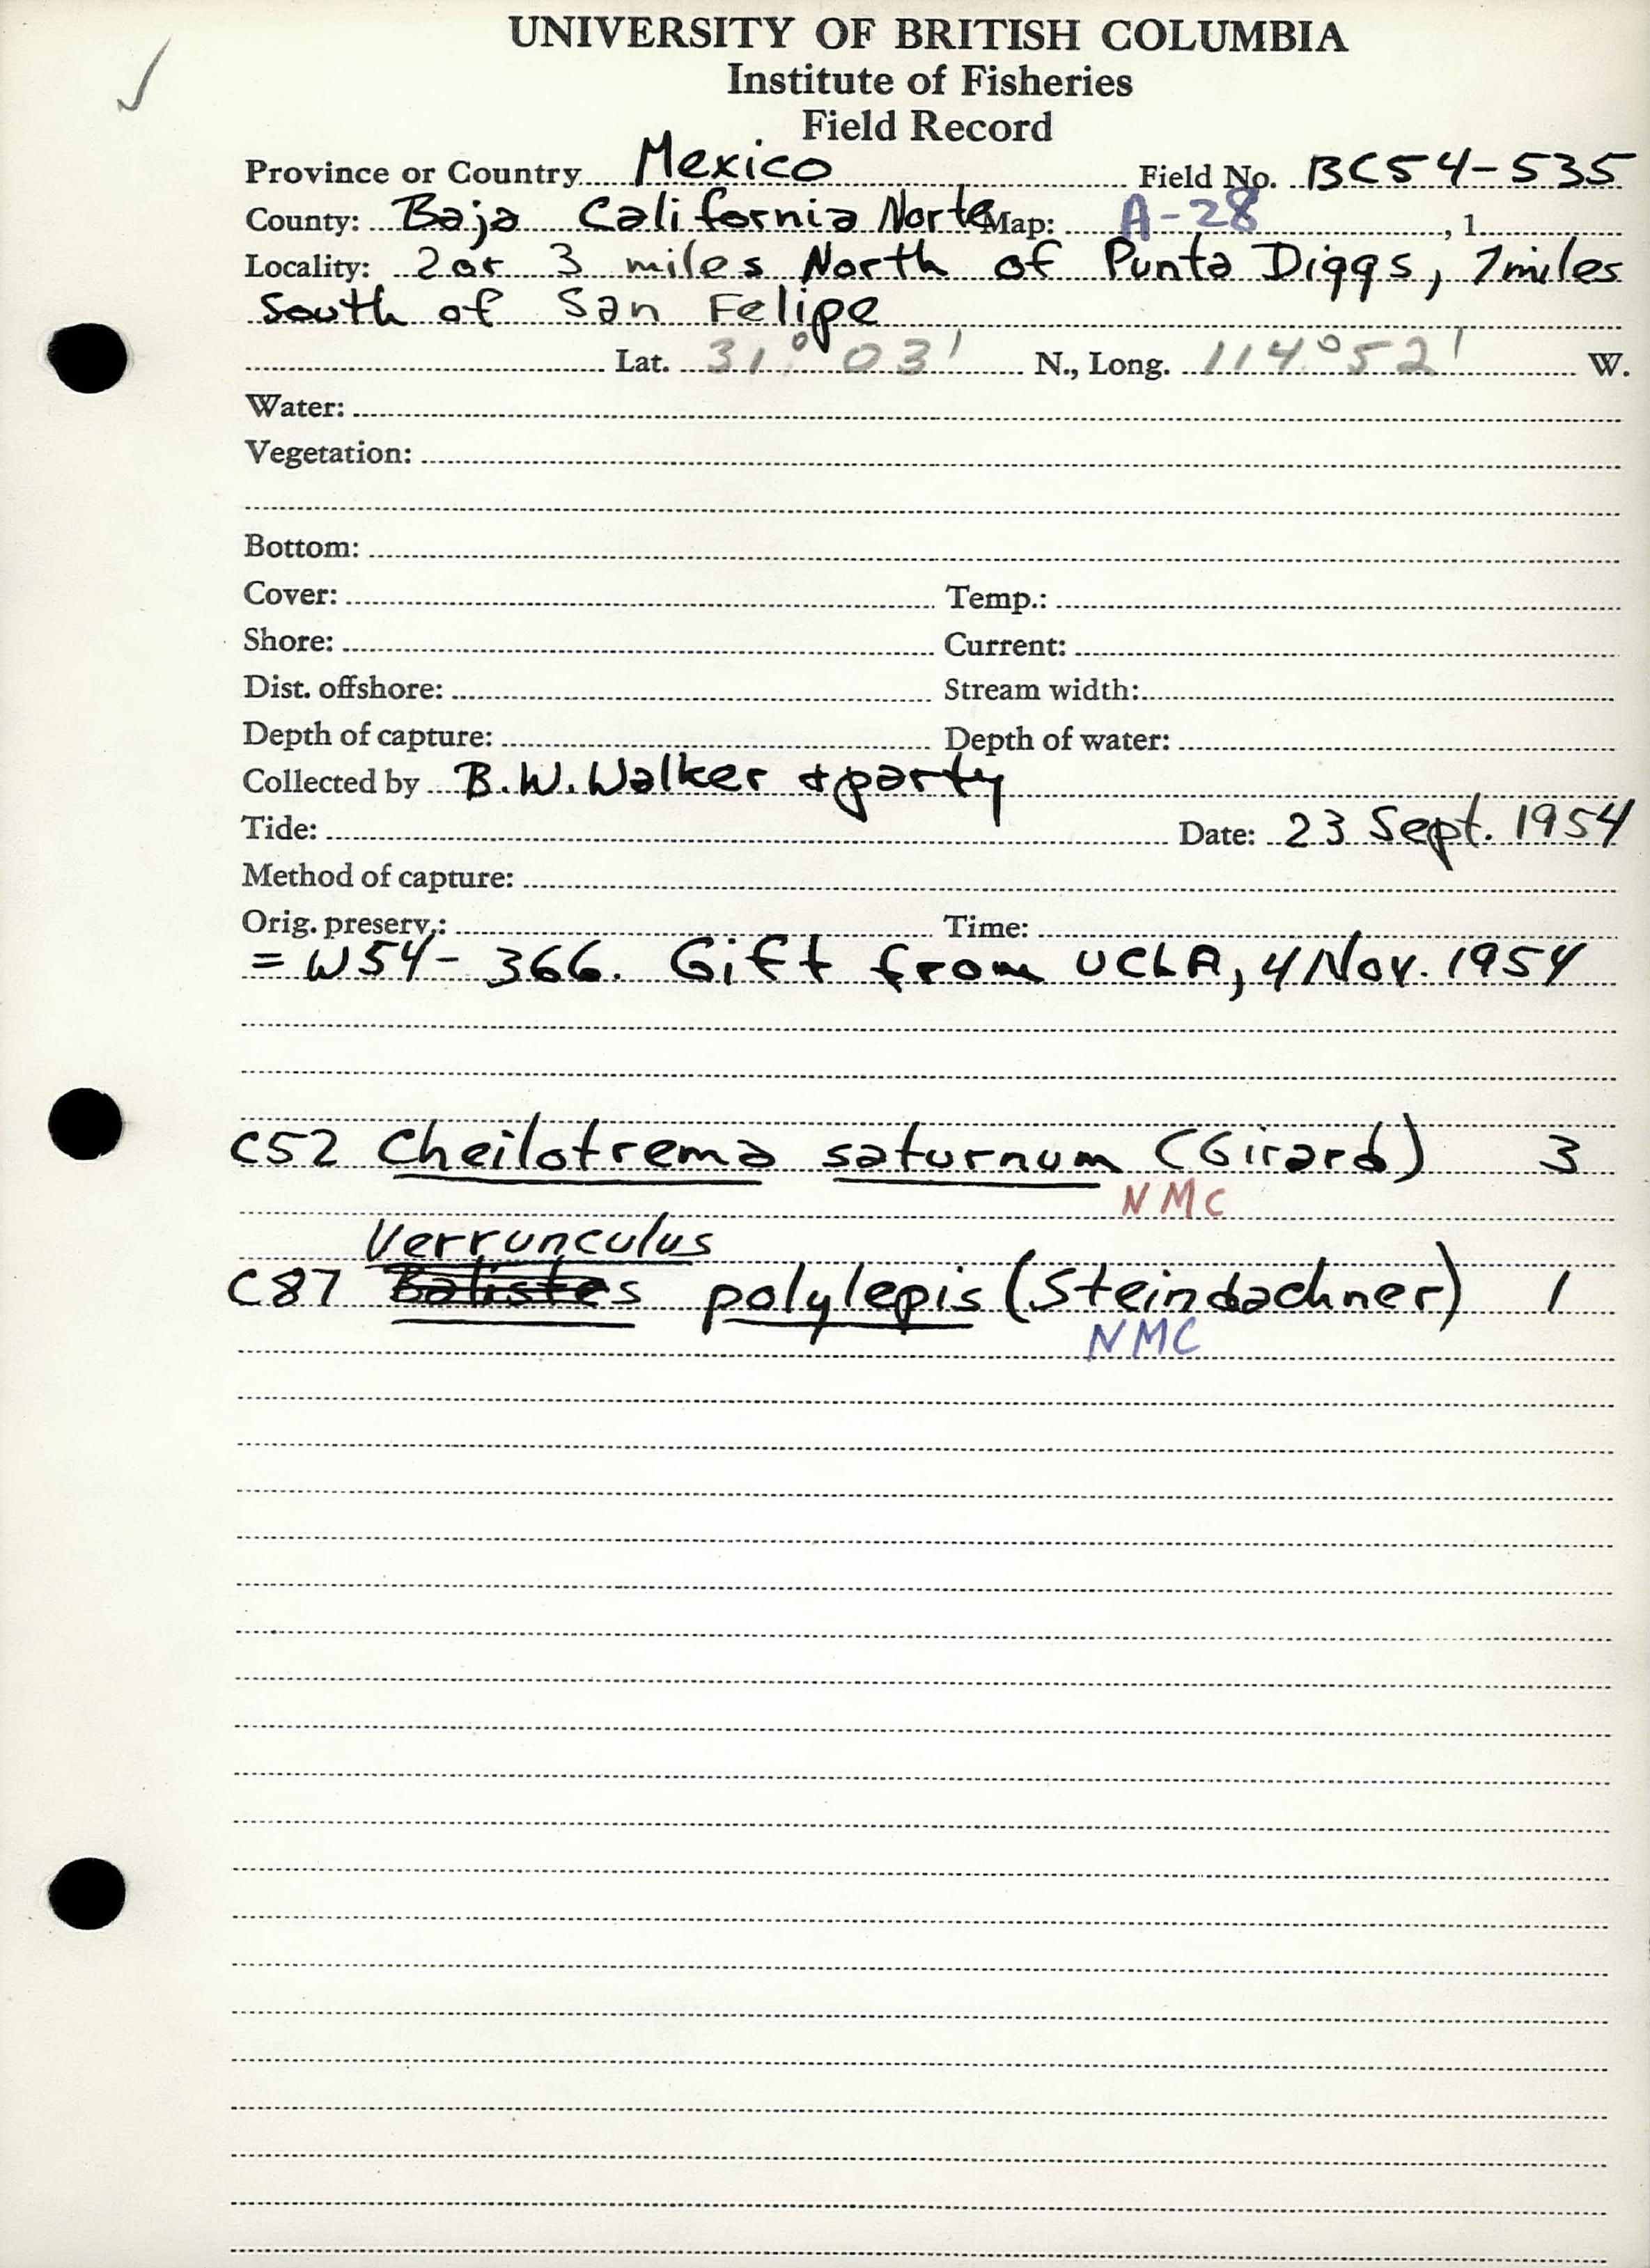 UNIVERSITY OF BRITISH COLUMBIA
Institute of Fisheries
Field Record
Province or Country Mexico Field No. BC54-535
County: Baja California Norte Map: A-28 , 1
Locality: 2 or 3 miles North of Punta Diggs, 7 miles
South of San Felipe
Lat. 31° 03' N., Long. 114° 52' W.
Water:
Vegetation:
Bottom:
Cover: Temp.:
Shore: Current:
Dist. offshore: Stream width:
Depth of capture: Depth of water:
Collected by B.W. Walker + party
Tide: Date: 23 Sept. 1954
Method of capture:
Orig. preserv.: Time:
= W54-366. Gift from UCLA, 4 Nov. 1954
C52 Cheilotrema saturnum (Girard) 3
NMC
Verrunculus
C87 Balistes polylepis (Steindachner) 1
NMC